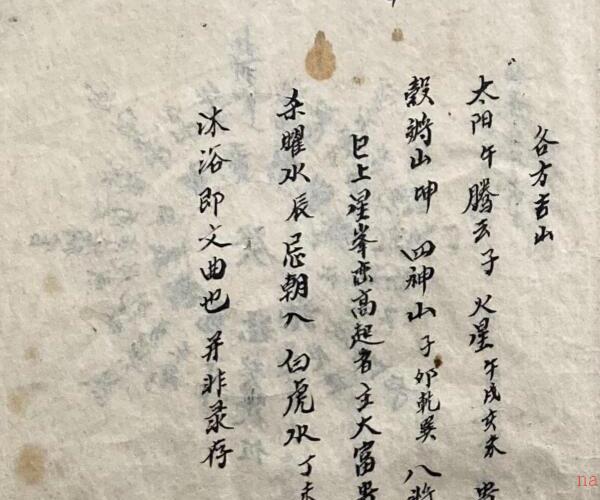 各方吉山
太阳午 腾云子 火星午戌亥未 貴
穀將山 申 四神山 子卯乾巽 八將
巳上星峯峦高起者主大富貴
杀曜水辰忌朝入 白虎水丁未
沐浴即文曲也 并非录存
na